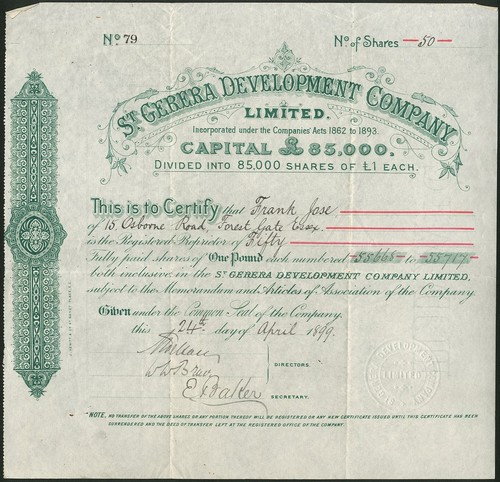 No. 79 No. of Shares —50—
ST. GERERA DEVELOPMENT COMPANY
LIMITED.
Incorporated under the Companies' Acts 1862 to 1893.
CAPITAL £85,000.
DIVIDED INTO 85,000 SHARES OF £1 EACH.
This is to Certify that Frank Jose
of 15 Osborne Road, Forest Gate Essex
is the Registered Proprietor of Fifty
Fully paid shares of One Pound each numbered to
both inclusive in the ST. GERERA DEVELOPMENT COMPANY LIMITED,
subject to the Memorandum and Articles of Association of the Company.
Given under the Common Seal of the Company.
this 24th day of April 1899.
DIRECTORS.
E A Baker
SECRETARY.
DEVELOPMENT
LIMITED
*NOTE, NO TRANSFER OF THE ABOVE SHARES OR ANY PORTION THEREOF WILL BE REGISTERED OR ANY NEW CERTIFICATE ISSUED UNTIL THIS CERTIFICATE HAS BEEN
SURRENDERED AND THE DEED OF TRANSFER LEFT AT THE REGISTERED OFFICE OF THE COMPANY.